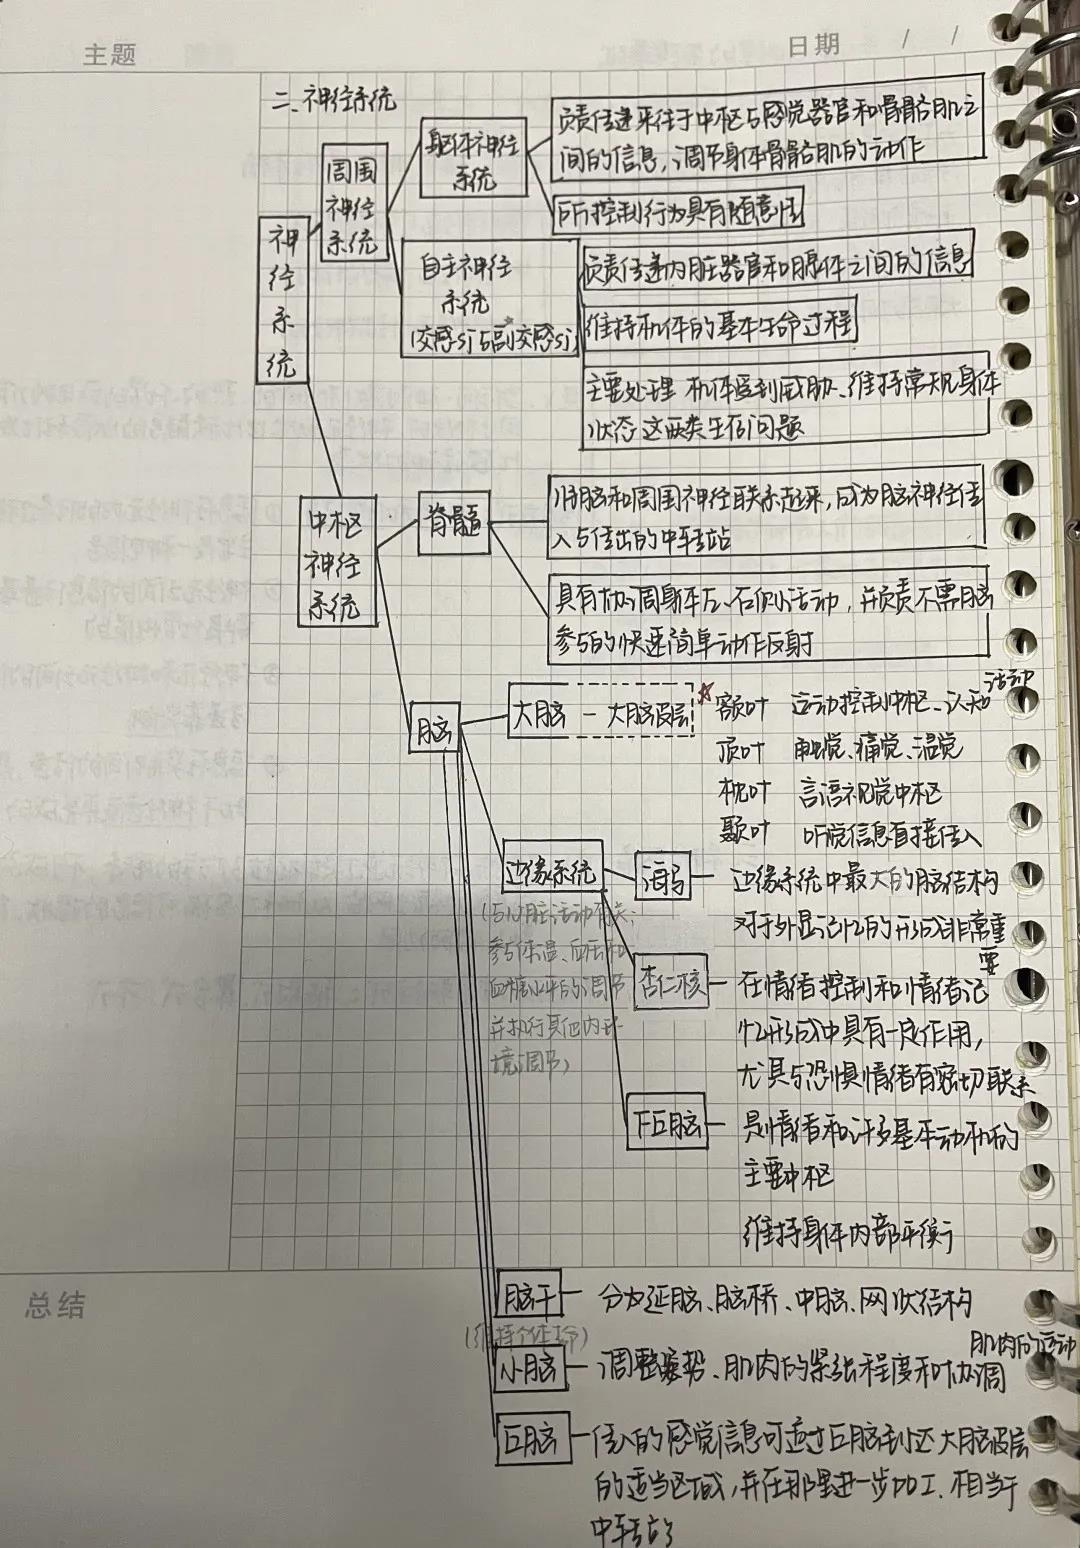 主题
日期 / /
二、神经系统
神经系统
周围神经系统
躯体神经系统
负责传递来往于中枢与感觉器官和骨骼肌之
间的信息，调节身体骨骼肌的动作
所控制行为具有随意性
自主神经系统
(交感sj与副交感sj)
负责传递内脏器官和腺体之间的信息
维持机体的基本生命过程
主要处理 机体受到威胁、维持常规身体
状态 这两类生存问题
中枢神经系统
脊髓
将脑和周围神经联系起来，成为脑神经传
入与传出的中转站
具有协调身体左、右侧活动，并负责不需脑
参与的快速简单动作反射
脑
大脑 - 大脑皮层
☆额叶 运动控制中枢、认知活动
顶叶 触觉、痛觉、温觉
枕叶 言语视觉中枢
颞叶 听觉信息直接传入
边缘系统
(与内脏活动有关；
参与体温、血压和
血糖水平的调节
并执行其他内环
境调节)
海马
边缘系统中最大的脑结构
对于外显记忆的形成非常重要
杏仁核
在情绪控制和情绪记
忆形成中具有一定作用，
尤其与恐惧情绪有密切联系
下丘脑
是情绪和许多基本动机的
主要中枢
维持身体内部平衡
总结
脑干 — 分为延脑、脑桥、中脑、网状结构
(维持个体生命)
小脑 — 调整姿势、肌肉的紧张程度和协调肌肉的运动
丘脑 — 传入的感觉信息可通过丘脑到达大脑皮层
的适当区域，并在那里进一步加工．相当于
中转站